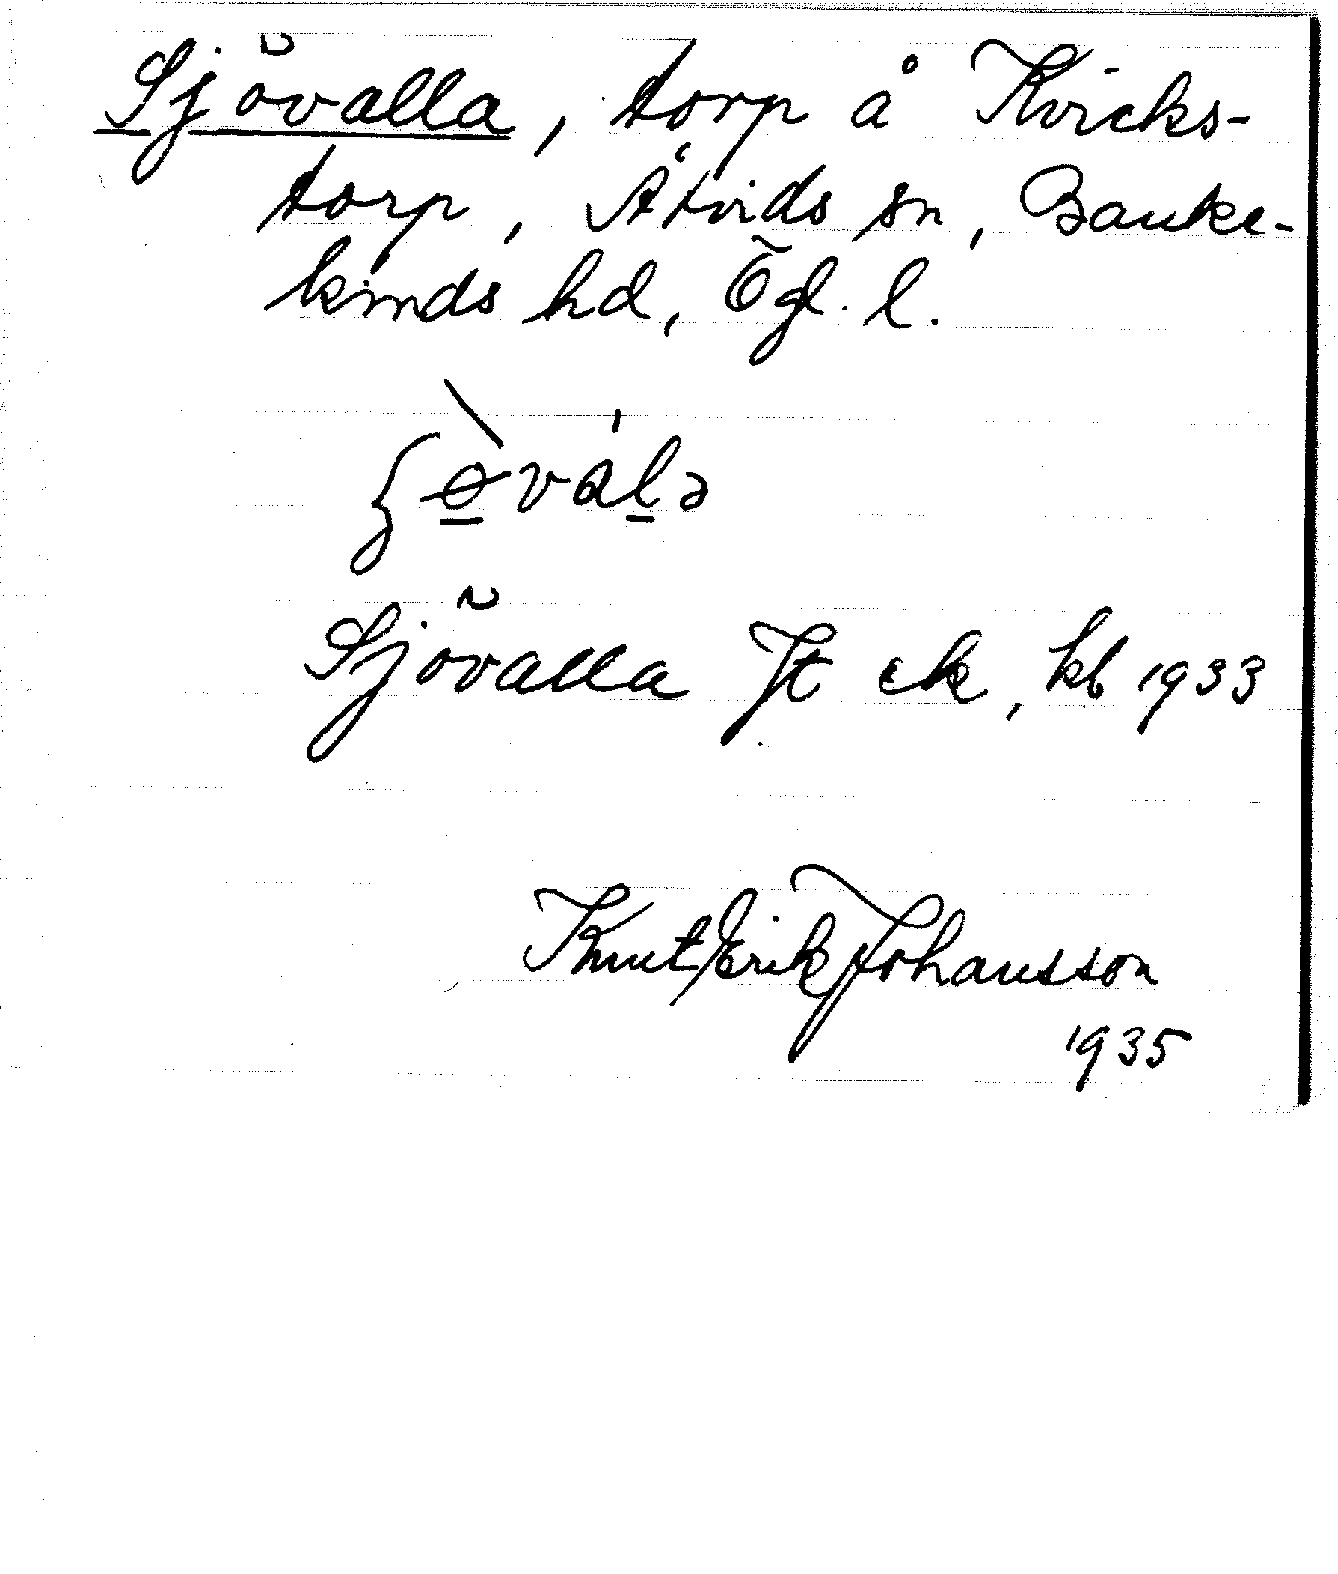 Sjövalla, torp å Kvicks-
torp, Åtvids sn, Banke-
kinds hd, Ögl. l.
Sjövalla Jt ek, kb 1933
Knut Erik Johansson
1935